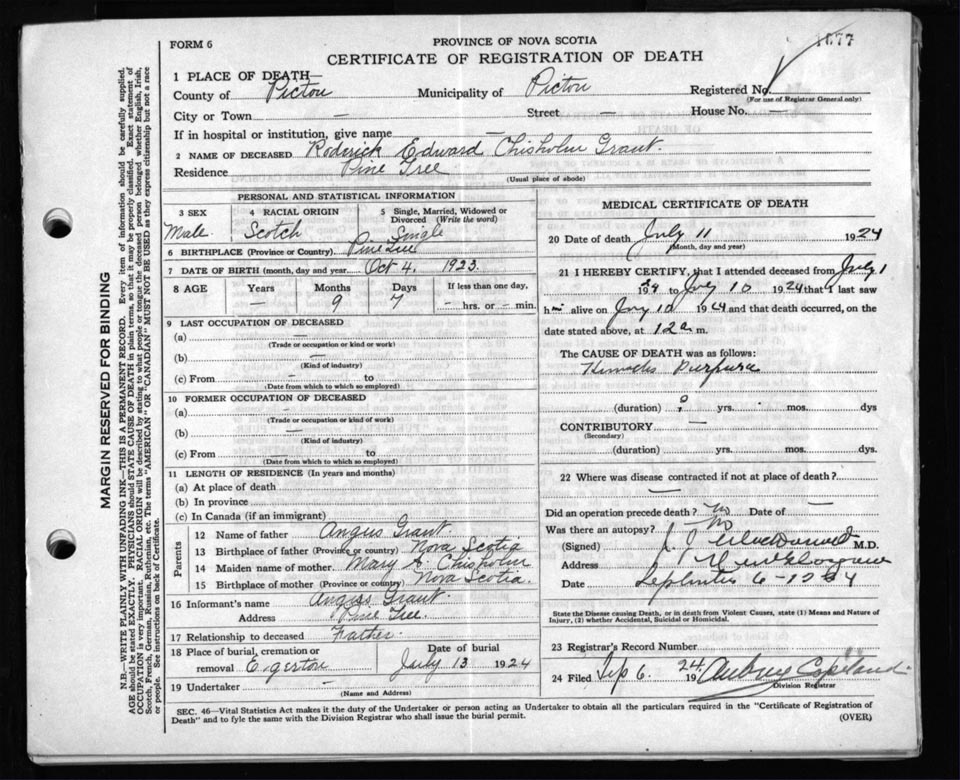 FORM 6
PROVINCE OF NOVA SCOTIA
1677
CERTIFICATE OF REGISTRATION OF DEATH
1 PLACE OF DEATH—
County of Pictou Municipality of Pictou Registered No.
(For use of Registrar General only)
City or Town — Street — House No. —
If in hospital or institution, give name —
2 NAME OF DECEASED Roderick Edward Chisholm Grant.
Residence Pine Tree
(Usual place of abode)
PERSONAL AND STATISTICAL INFORMATION
3 SEX 4 RACIAL ORIGIN 5 Single, Married, Widowed or Divorced (Write the word)
Male. Scotch Single
6 BIRTHPLACE (Province or Country). Pine Tree
7 DATE OF BIRTH (month, day and year) Oct 4. 1923.
8 AGE Years Months Days If less than one day,
— 9 7 — hrs. or — min.
9 LAST OCCUPATION OF DECEASED
(a) —
(Trade or occupation or kind of work)
(b) —
(Kind of industry)
(c) From — to
(Date from which to which so employed)
10 FORMER OCCUPATION OF DECEASED
(a) —
(Trade or occupation or kind of work)
(b) —
(Kind of industry)
(c) From — to
(Date from which to which so employed)
11 LENGTH OF RESIDENCE (In years and months)
(a) At place of death
(b) In province
(c) In Canada (if an immigrant)
Parents
12 Name of father Angus Grant.
13 Birthplace of father (Province or country) Nova Scotia
14 Maiden name of mother. Mary A. Chisholm
15 Birthplace of mother (Province or country) Nova Scotia.
16 Informant's name Angus Grant.
Address Pine Tree.
17 Relationship to deceased Father.
18 Place of burial, cremation or removal Egerton Date of burial July 13 1924
19 Undertaker —
(Name and Address)
MEDICAL CERTIFICATE OF DEATH
20 Date of death July 11 1924
(Month, day and year)
21 I HEREBY CERTIFY, that I attended deceased from July 1
1924 to July 10 1924 that I last saw
h alive on July 10 1924 and that death occurred, on the
date stated above, at 12 a m.
The CAUSE OF DEATH was as follows:
Purpura
(duration) ? yrs. mos. dys
CONTRIBUTORY —
(Secondary)
(duration) yrs. mos. dys.
22 Where was disease contracted if not at place of death?
—
Did an operation precede death? No Date of —
Was there an autopsy? No
(Signed) M.D.
Address New Glasgow
Date September 6 - 1924
State the Disease causing Death, or in death from Violent Causes, state (1) Means and Nature of
Injury, (2) whether Accidental, Suicidal or Homicidal.
23 Registrar's Record Number
24 Filed Sep 6. 1924 Aubrey Copeland.
Division Registrar
SEC. 46—Vital Statistics Act makes it the duty of the Undertaker or person acting as Undertaker to obtain all the particulars required in the "Certificate of Registration of
Death" and to fyle the same with the Division Registrar who shall issue the burial permit.
(OVER)
MARGIN RESERVED FOR BINDING
N.B.—WRITE PLAINLY WITH UNFADING INK—THIS IS A PERMANENT RECORD. Every item of information should be carefully supplied.
AGE should be stated EXACTLY. PHYSICIANS should STATE CAUSE OF DEATH in plain terms, so that it may be properly classified. Exact statement of
OCCUPATION is very important. RACIAL ORIGIN will be described by stating to what people or tongue the deceased person belonged whether English, Irish,
Scotch, French, German, Russian, Ruthenian, etc. The terms "AMERICAN" OR "CANADIAN" MUST NOT BE USED as they express citizenship but not a race
or people. See instructions on back of Certificate.